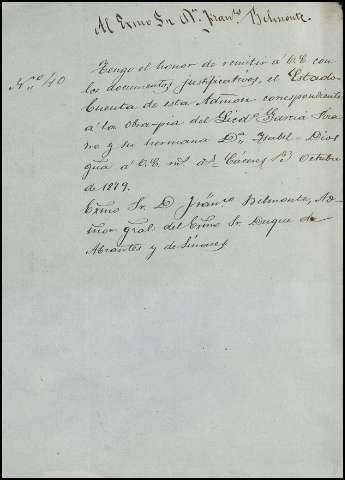 Al Exmo Sr. Dn. Franco Belmonte.
Nº 40
Tengo el honor de remitir á V.E. con
los documentos justificativos, el Estado-
Cuenta de esta Admon. correspondiente
á la obra-pia del Licdo. Garcia
y su hermana Dª Isabel = Dios
gue á V.E. ms. as. = Cáceres 13 Octubre
de 1879.
Exmo Sr. D. Franco Belmonte, Ad-
mor gral. del Exmo Sr. Duque de
Abrantes y de Linares